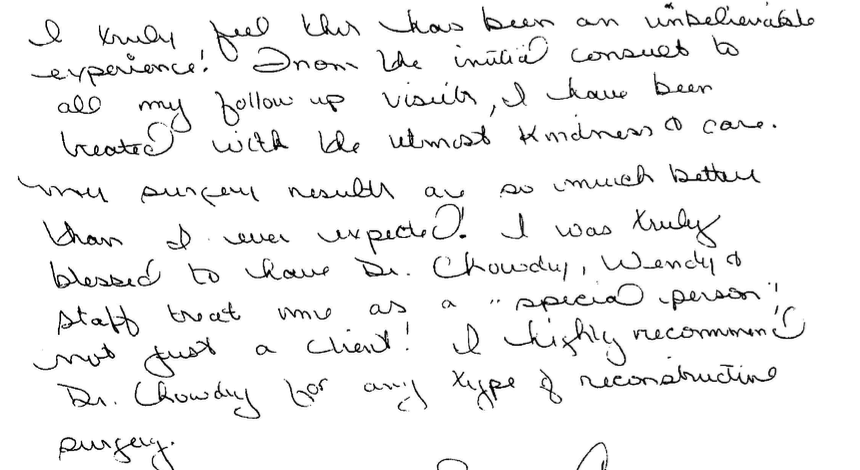 I truly feel this has been an unbelievable
experience! From the initial consult to
all my follow up visits, I have been
treated with the utmost kindness & care.
My surgery results are so much better
than I ever expected! I was truly
blessed to have Dr. Chowdry, Wendy &
staff treat me as a "special person",
not just a client! I highly recommend
Dr. Chowdry for any type of reconstructive
surgery.